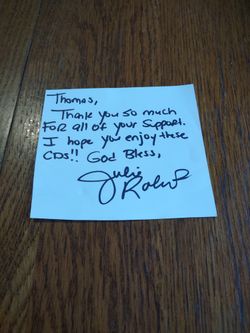 Thomas,
Thank you so much
FOR all of your Support.
I hope you enjoy these
CDs!! God Bless,
Julie